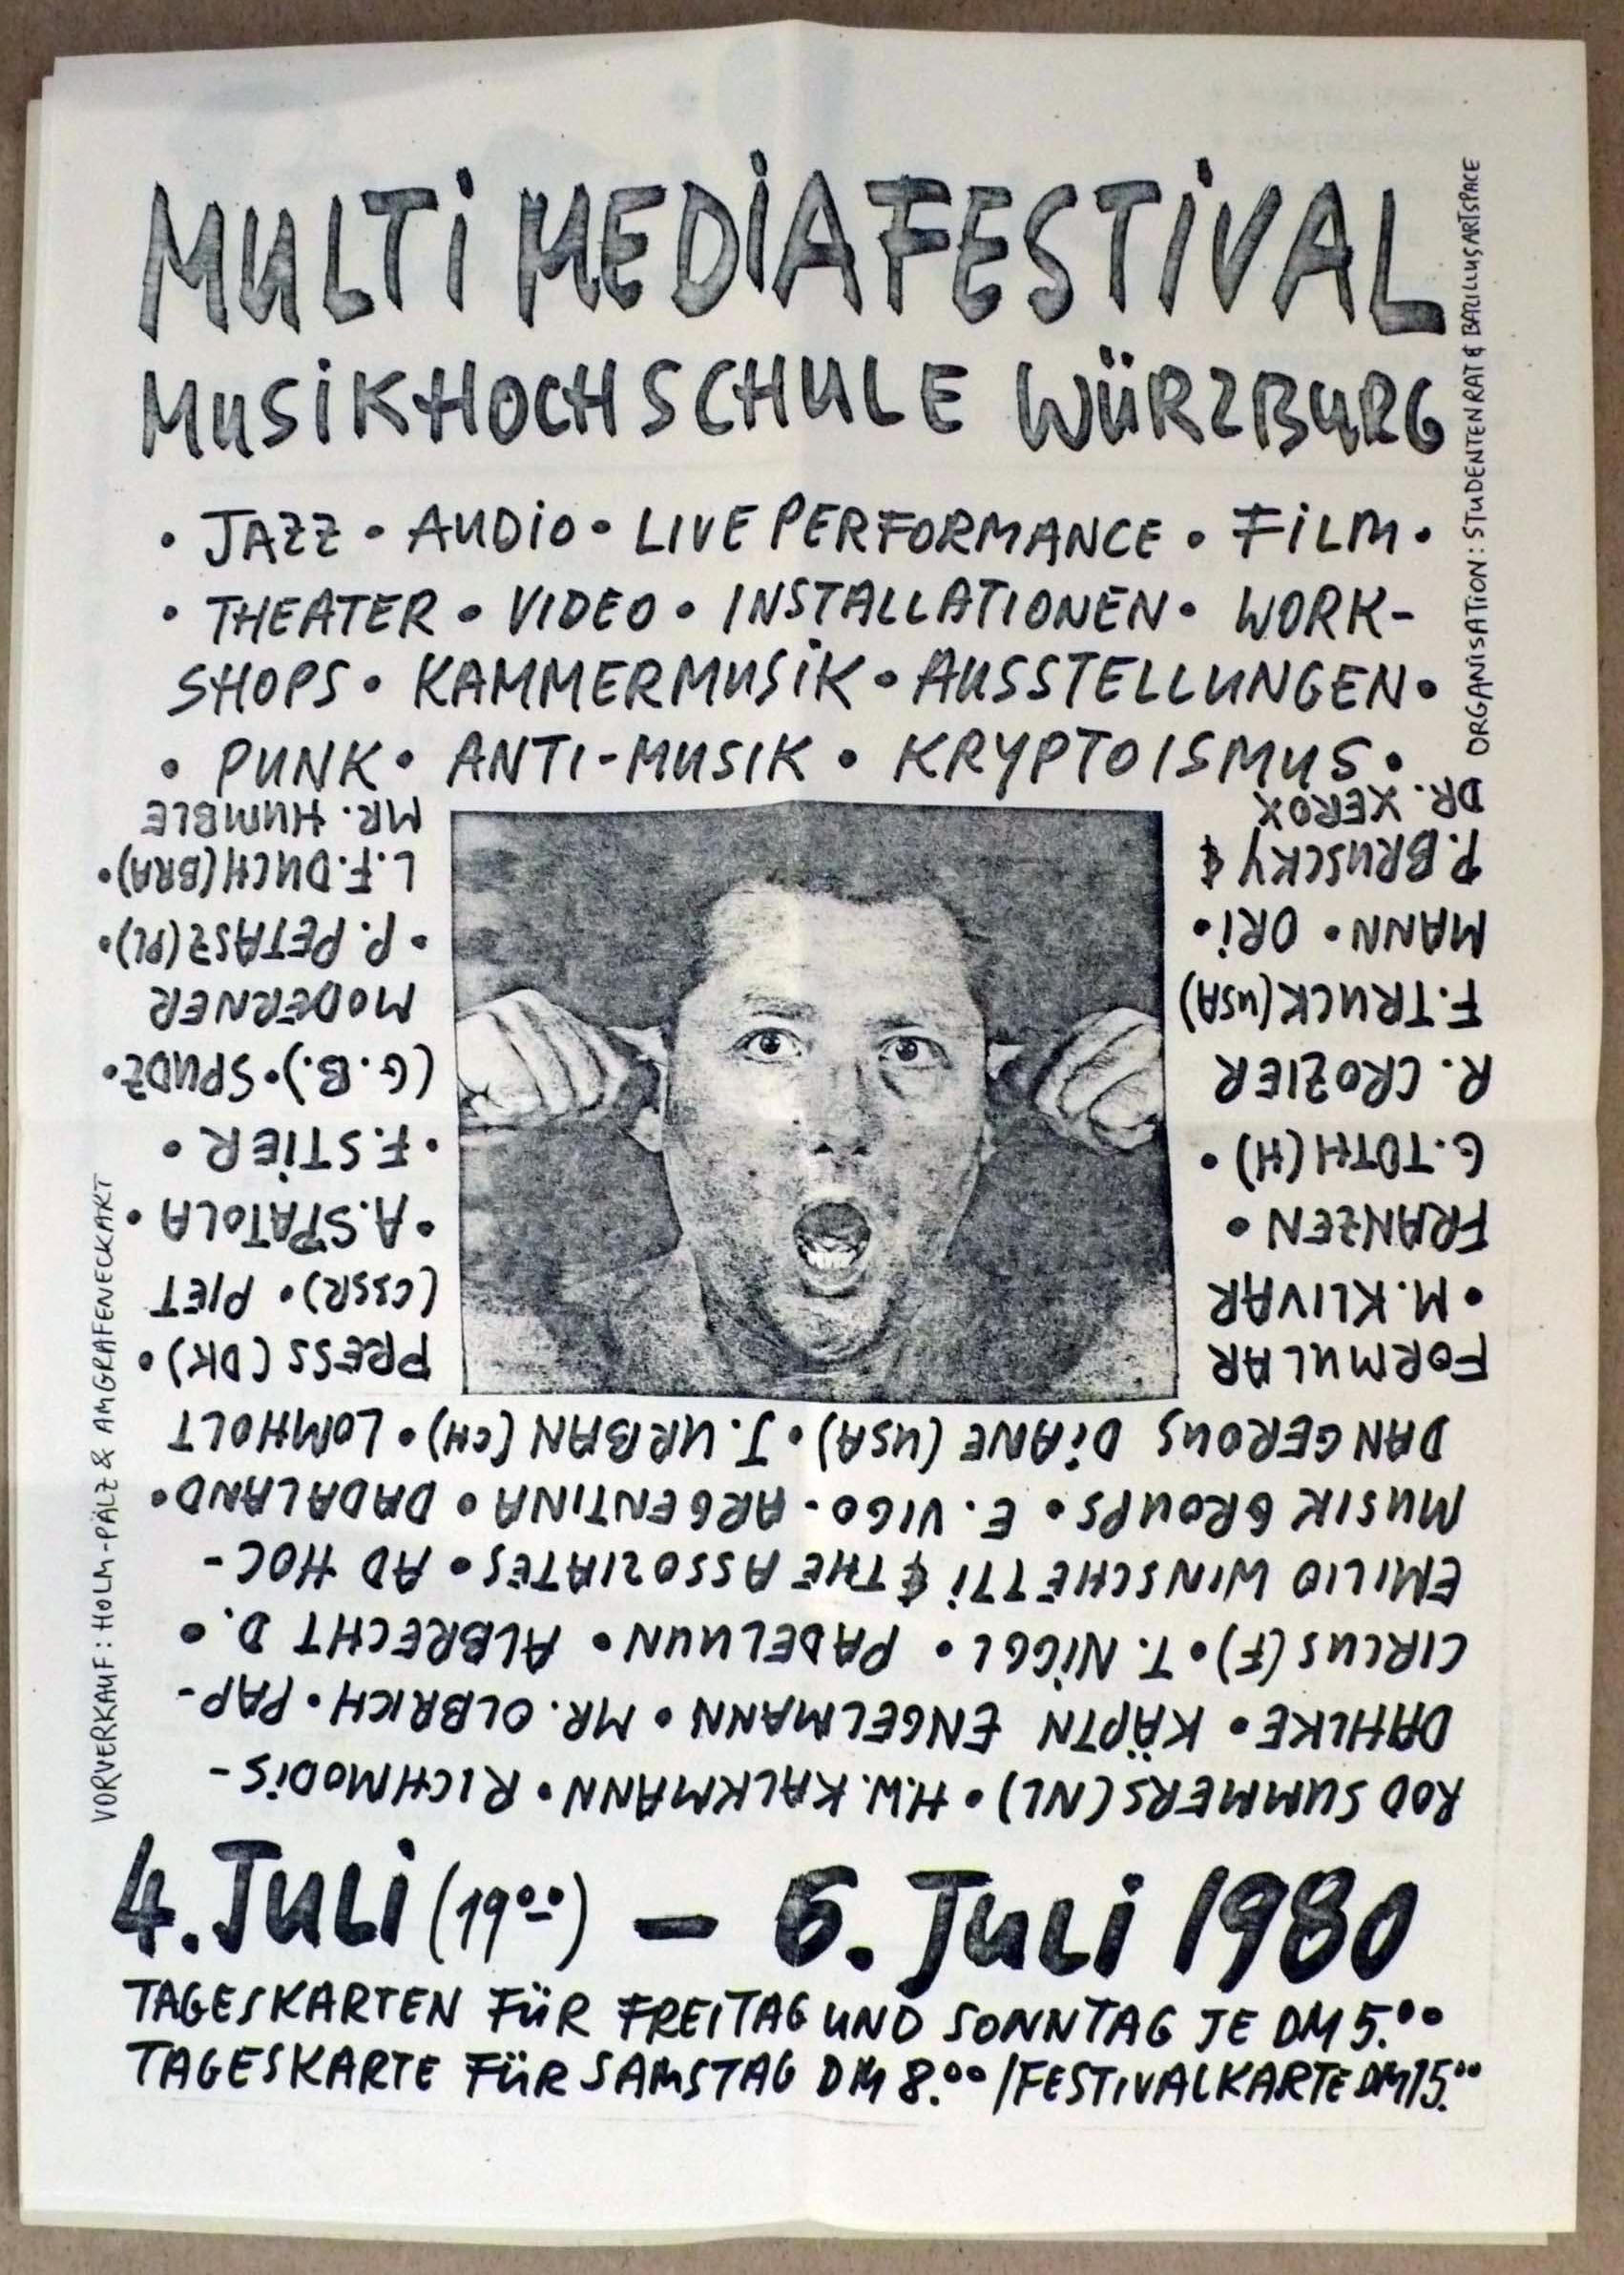 MULTI MEDIAFESTIVAL
MUSIKHOCHSCHULE WÜRZBURG
ORGANISATION: STUDENTENRAT & BAZILLUS ARTSPACE
• JAZZ • AUDIO • LIVE PERFORMANCE • FILM •
• THEATER • VIDEO • INSTALLATIONEN • WORK-
SHOPS • KAMMERMUSIK • AUSSTELLUNGEN •
• PUNK • ANTI-MUSIK • KRYPTOISMUS •
ROD SUMMERS (NL) • H.W. KALKMANN • RICHMODIS-
DAHLKE • KÄPTN ENGELMANN • MR. OLBRICH • PAP-
CIRCUS (F) • T. NIGGL • PADELUUN • ALBRECHT D. •
EMILIO WINSCHETTI & THE ASSOZIATES • AD HOC-
MUSIK GROUPS • E. VIGO-ARGENTINA • DADALAND •
DANGEROUS DIANE (USA) • J. URBAN (CH) • LOMHOLT
FORMULAR PRESS (DK) •
• M. KLIVAR (CSSR) • PIET
FRANZEN • • A. SPATOLA •
G. TOTH (H) • • F. STIER •
R. CROZIER (G.B.) • SPUDZ •
F. TRUCK (USA) MODERNER
MANN • ORI • • P. PETASZ (PL) •
P. BRUSCKY & L.F. DUCH (BRA) •
DR. XEROX MR. HUMBLE
VORVERKAUF: HOLM-PÄLZ & AM GRAFENECKAKT
4. JULI (19⁰⁰) – 6. JULI 1980
TAGESKARTEN FÜR FREITAG UND SONNTAG JE DM 5.⁰⁰
TAGESKARTE FÜR SAMSTAG DM 8.⁰⁰ / FESTIVALKARTE DM 15.⁰⁰